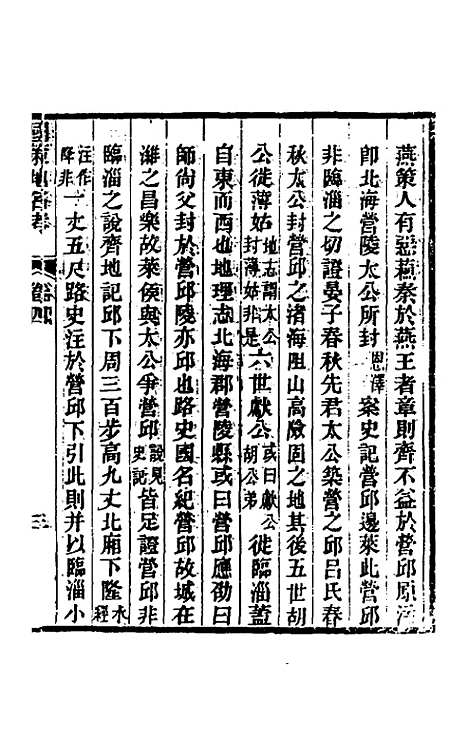 燕策人有惡蘇秦於燕王者章則齊不益於營邱原注
卽北海營陵太公所封恩澤案史記營邱邊萊此營邱
非臨淄之切證晏子春秋先君太公築營之邱呂氏春
秋太公封營邱之渚海阻山高險固之地其後五世胡
公徙薄姑地志謂太公封薄姑非是六世獻公或曰獻公胡公弟徙臨淄蓋
自東而西也地理志北海郡營陵縣或曰營邱應劭曰
師尚父封於營邱陵亦邱也路史國名紀營邱故城在
濰之昌樂故萊侯與太公爭營邱說見史記皆足證營邱非
臨淄之說齊地記邱下周三百步高九丈北廂下隆水經
注作降非一丈五尺路史注於營邱下引此則并以臨淄小
國策地名考
卷四
三